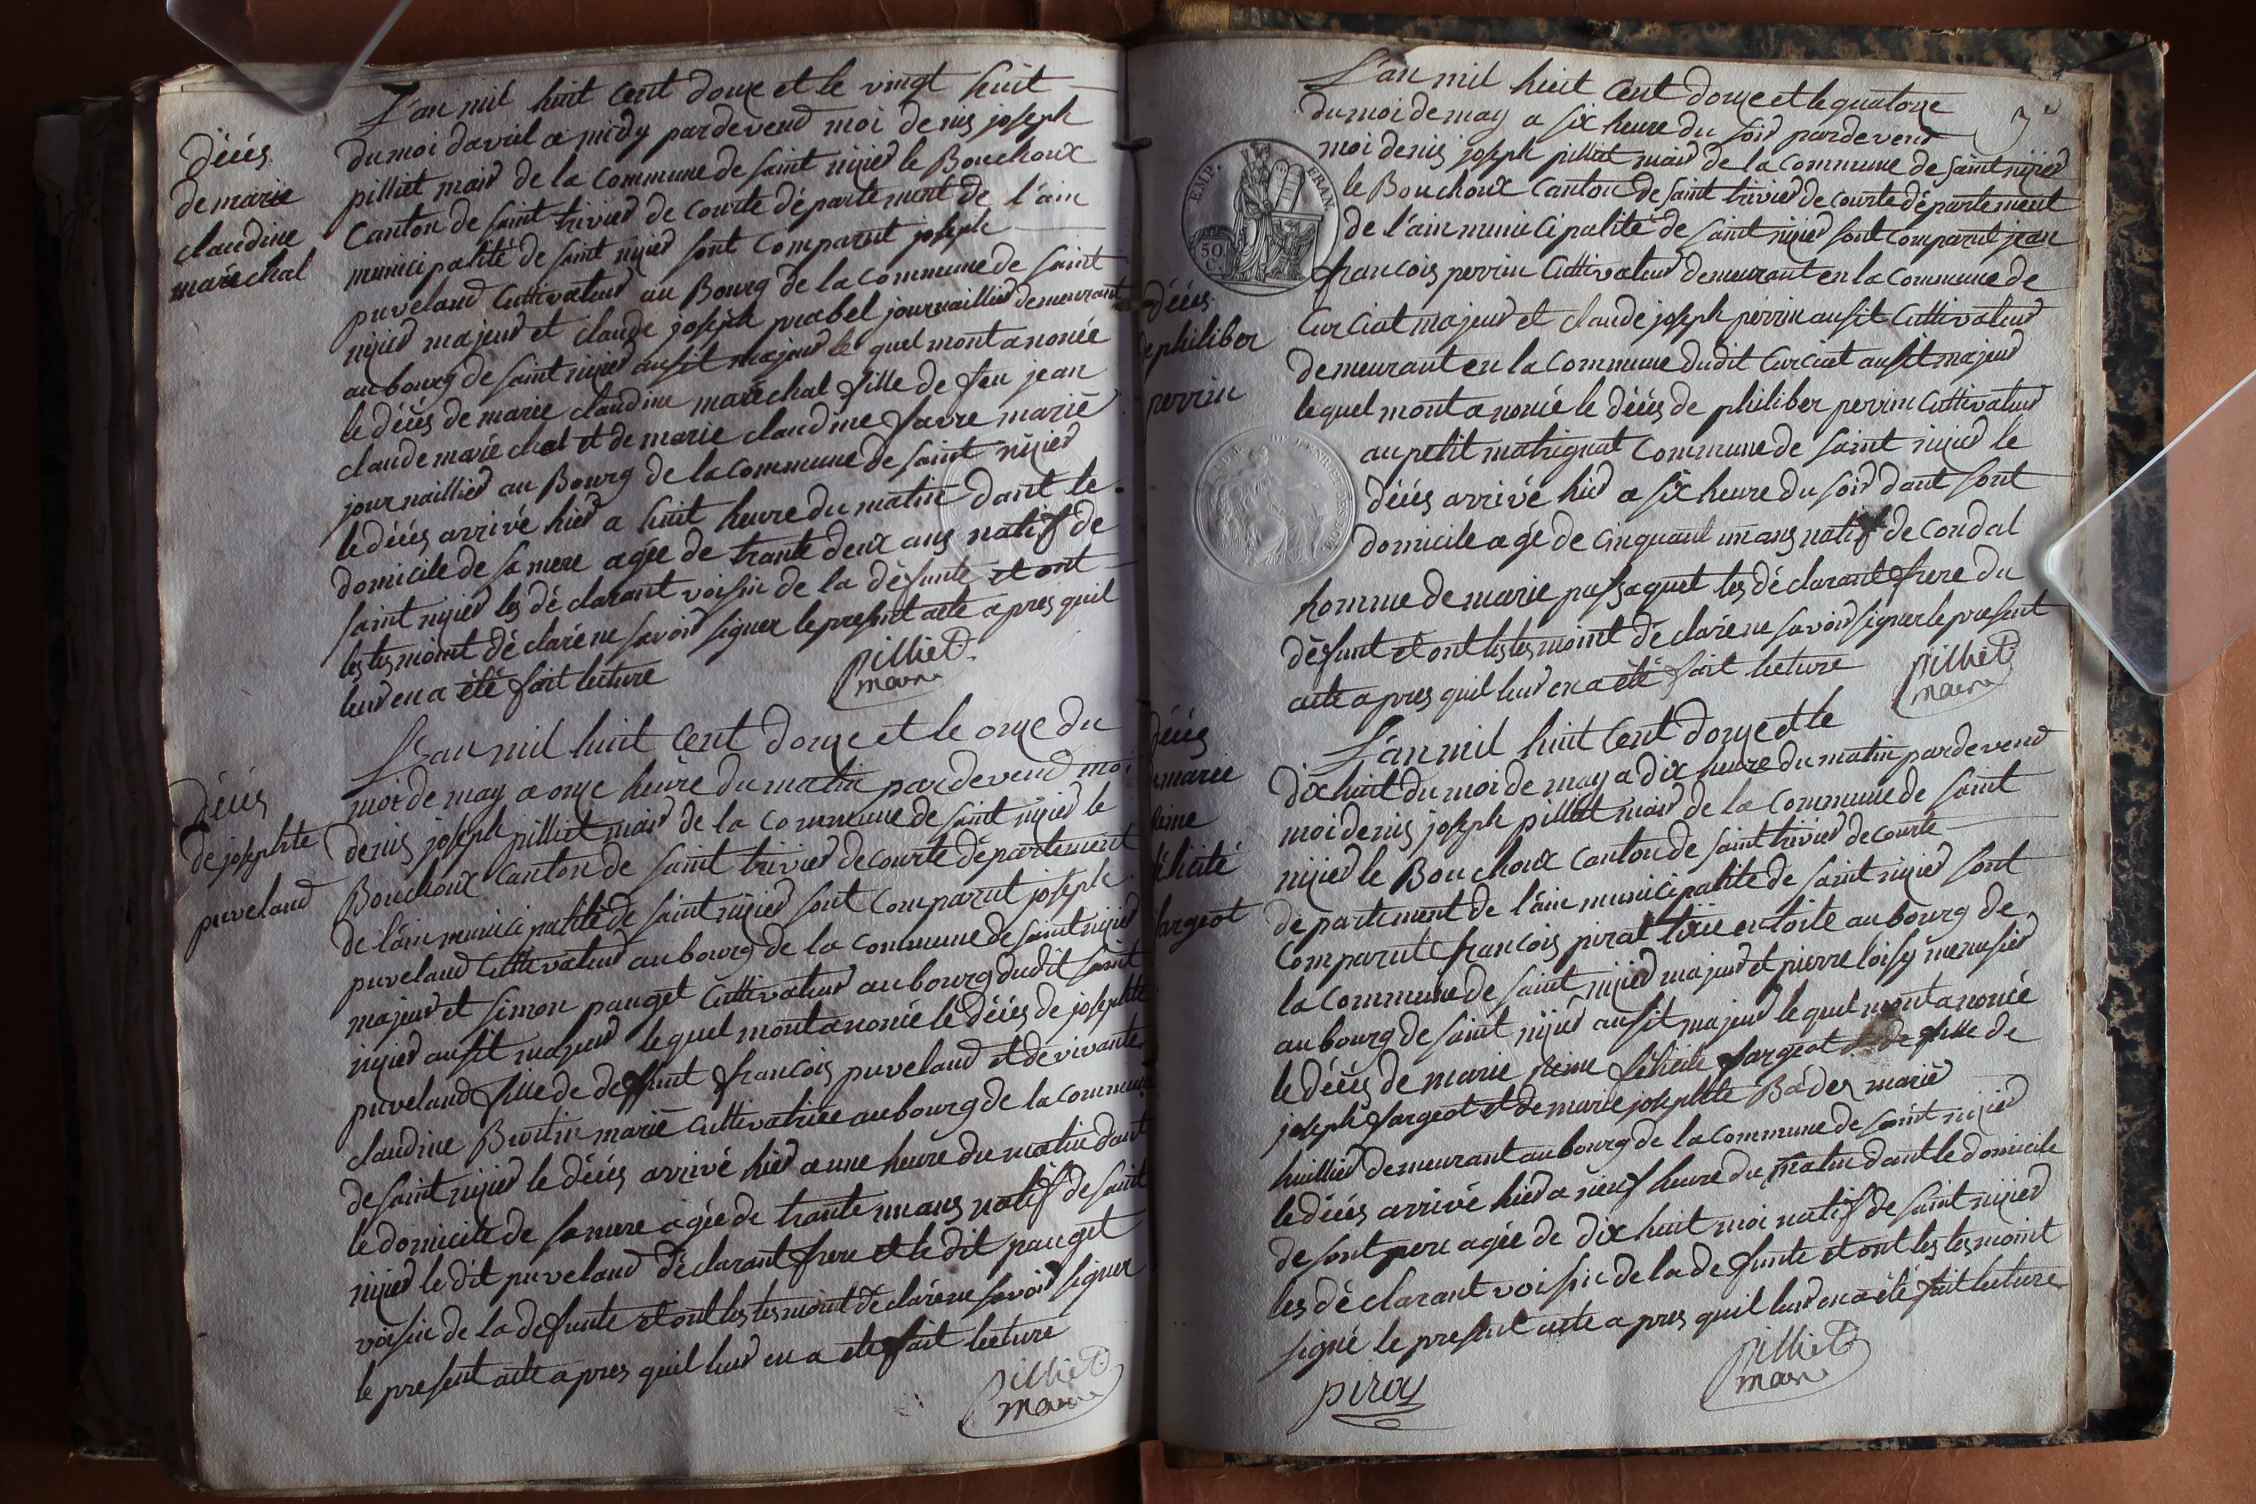 décés
de marie
claudine
maréchal
L'an mil huit cent douze et le vingt huit
du moi davril a midy pardevend moi denis joseph
pilliet maire de la commune de saint nizier le Bouchoux
Canton de saint trivier de courte département de l'ain
municipalité de saint nizier sont comparut joseph
puveland Cultivateur au Bourg de la commune de saint
nizier majeur et claude joseph prabel journaillier demeurant
au bourg de saint nizier ausit majeur le quel mont anoncé
le décés de marie claudine maréchal fille de feu jean
claude maréchal et de marie claudine favre marié
journaillier au Bourg de la commune de saint nizier
le décés arrivé hier a huit heure du matin dant le
domicile de sa mere agée de trante deux ans natif de
saint nizier les déclarant voisin de la défunte et ont
les tesmoint déclaré ne savoir signer le présent acte apres quil
leur en a été fait lecture
pilliet
maire
décés
de josephte
puveland
L'an mil huit cent douze et le onze du
moi de may a onze heure du matin pardevend moi
denis joseph pilliet maire de la commune de saint nizier le
Bouchoux Canton de saint trivier de courte département
de l'ain municipalité de saint nizier sont comparut joseph
puveland Cultivateur au bourg de la commune de saint nizier
majeur et simon pauget Cultivateur au bourg dudit saint
nizier ausit majeur le quel mont anoncé le décés de josephte
puveland fille de deffunt francois puveland et de vivante
claudine Burtin marié cultivatrice au bourg de la commune
de saint nizier le décés arrivé hier a une heure du matin dant
le domicile de sa mere agée de trante un ans natif de saint
nizier le dit puveland déclarant frere et le dit pauget
voisin de la defunte et ont les tesmoint déclaré ne savoir signer
le present acte apres quil leur en a ete fait lecture
pilliet
maire
L'an mil huit cent douze et le quatorze
du moi de may a six heure du soir pardevend
moi denis joseph pilliet maire de la commune de saint nizier
EMP. FRAN
50
C.
le Bouchoux Canton de saint trivier de courte département
de l'ain municipalité de saint nizier sont comparut jean
francois perrin Cultivateur demeurant en la commune de
décés
de philiber
perrin
Curciat majeur et claude joseph perrin ausit Cultivateur
demeurant en la commune dudit Curciat ausit majeur
lequel mont anoncé le décés de philiber perrin Cultivateur
au petit matrignat commune de saint nizier le
décés arrivé hier a six heure du soir dant sont
domicile agé de cinquant un ans natif de condal
homme de marie passaquet les déclarant frere du
défunt et ont les tesmoint déclaré ne savoir signer le present
acte apres quil leur en a été fait lecture
pilliet
maire
décés
de marie
reine
félicité
fargeot
L'an mil huit cent douze et le
dix huit du moi de may a dix heure du matin pardevend
moi denis joseph pilliet maire de la commune de saint
nizier le Bouchoux Canton de saint trivier de courte
departement de l'ain municipalité de saint nizier sont
comparut francois pirat tixié en toile au bourg de
la commune de saint nizier majeur et pierre loisy menusier
au bourg de saint nizier ausit majeur le quel mont anoncé
le décés de marie reine félicité fargeot fille de
joseph fargeot et de marie josephte Badez marié
huillier demeurant au bourg de la commune de saint nizier
le décés arrivé hier a neuf heure du matin dant le domicile
de sont pere agée de dix huit moi natif de saint nizier
les déclarant voisin de la defunte et ont les tesmoint
signé le present acte apres quil leur en a été fait lecture
pilliet
maire
pirat